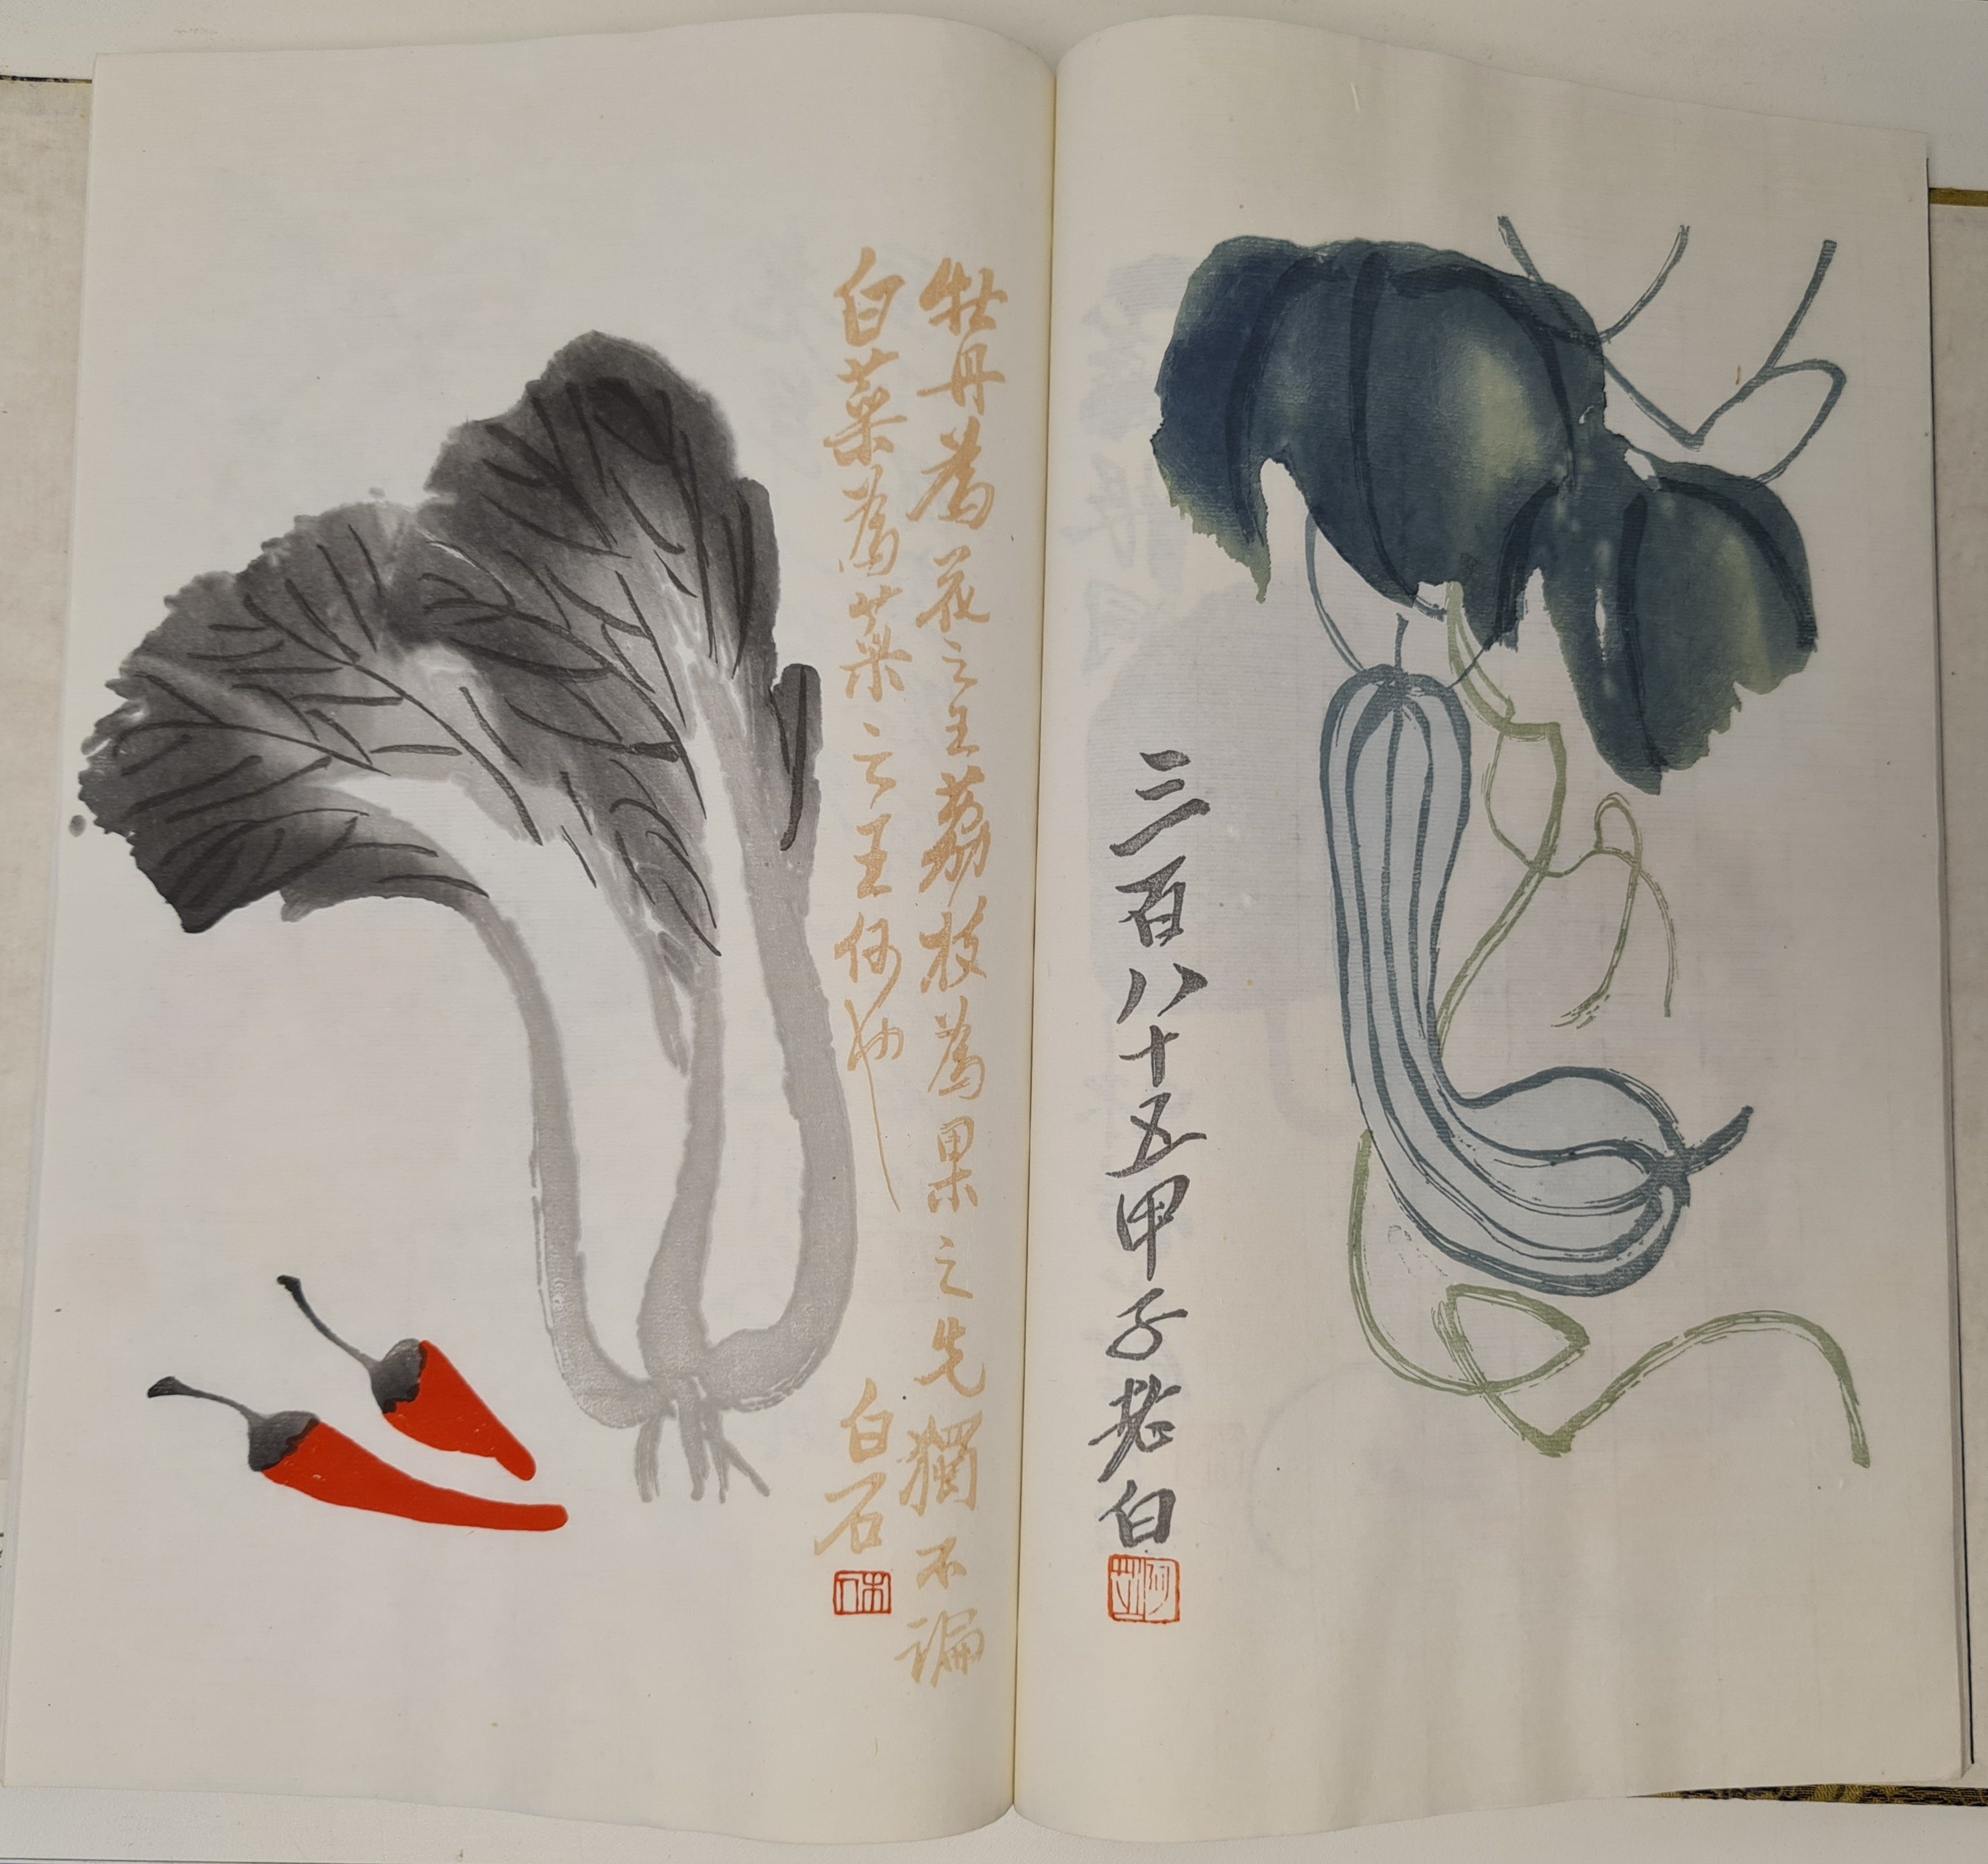 三百八十五甲子老白
阿芝
牡丹為花之王荔枝為果之先獨不論
白菜為菜之王何也
白石
木人